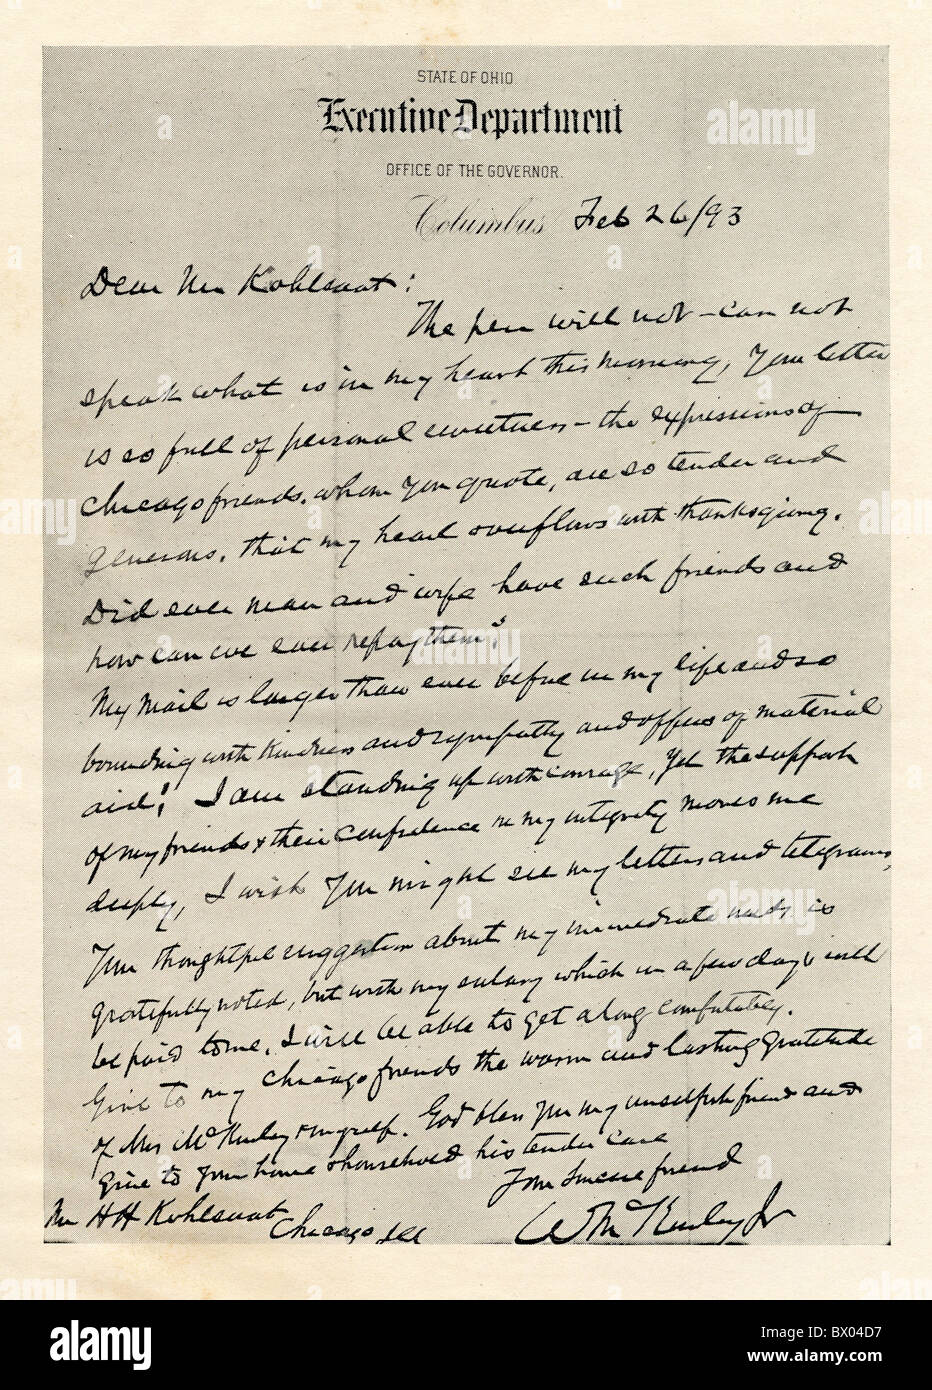 STATE OF OHIO
Executive Department
OFFICE OF THE GOVERNOR.
Columbus Feb 26/93
Dear Mr Kohlsaat:
The pen will not – can not
speak what is in my heart this morning, Your letter
is so full of personal sweetness – the expressions of
Chicago friends, whom you quote, are so tender and
generous, that my heart overflows with thanksgiving.
Did ever man and wife have such friends and
how can we ever repay them?
My mail is larger than ever before in my life and so
bounding with kindness and sympathy and offers of material
aid! I am standing up with courage, yet the support
of my friends & their confidence in my integrity moves me
deeply, I wish you might see my letters and telegrams,
Your thoughtful suggestion about my immediate needs is
gratefully noted, but with my salary which in a few days will
be paid to me, I will be able to get along comfortably.
Give to my Chicago friends the warm and lasting gratitude
of Mrs McKinley & myself. God bless you my unselfish friend and
give to your home & household his tender care
Your sincere friend
Mr H H Kohlsaat
Chicago Ill
W McKinley Jr
a
alamy
alamy
alamy
alamy
alamy
alamy
Image ID: BX04D7
www.alamy.com